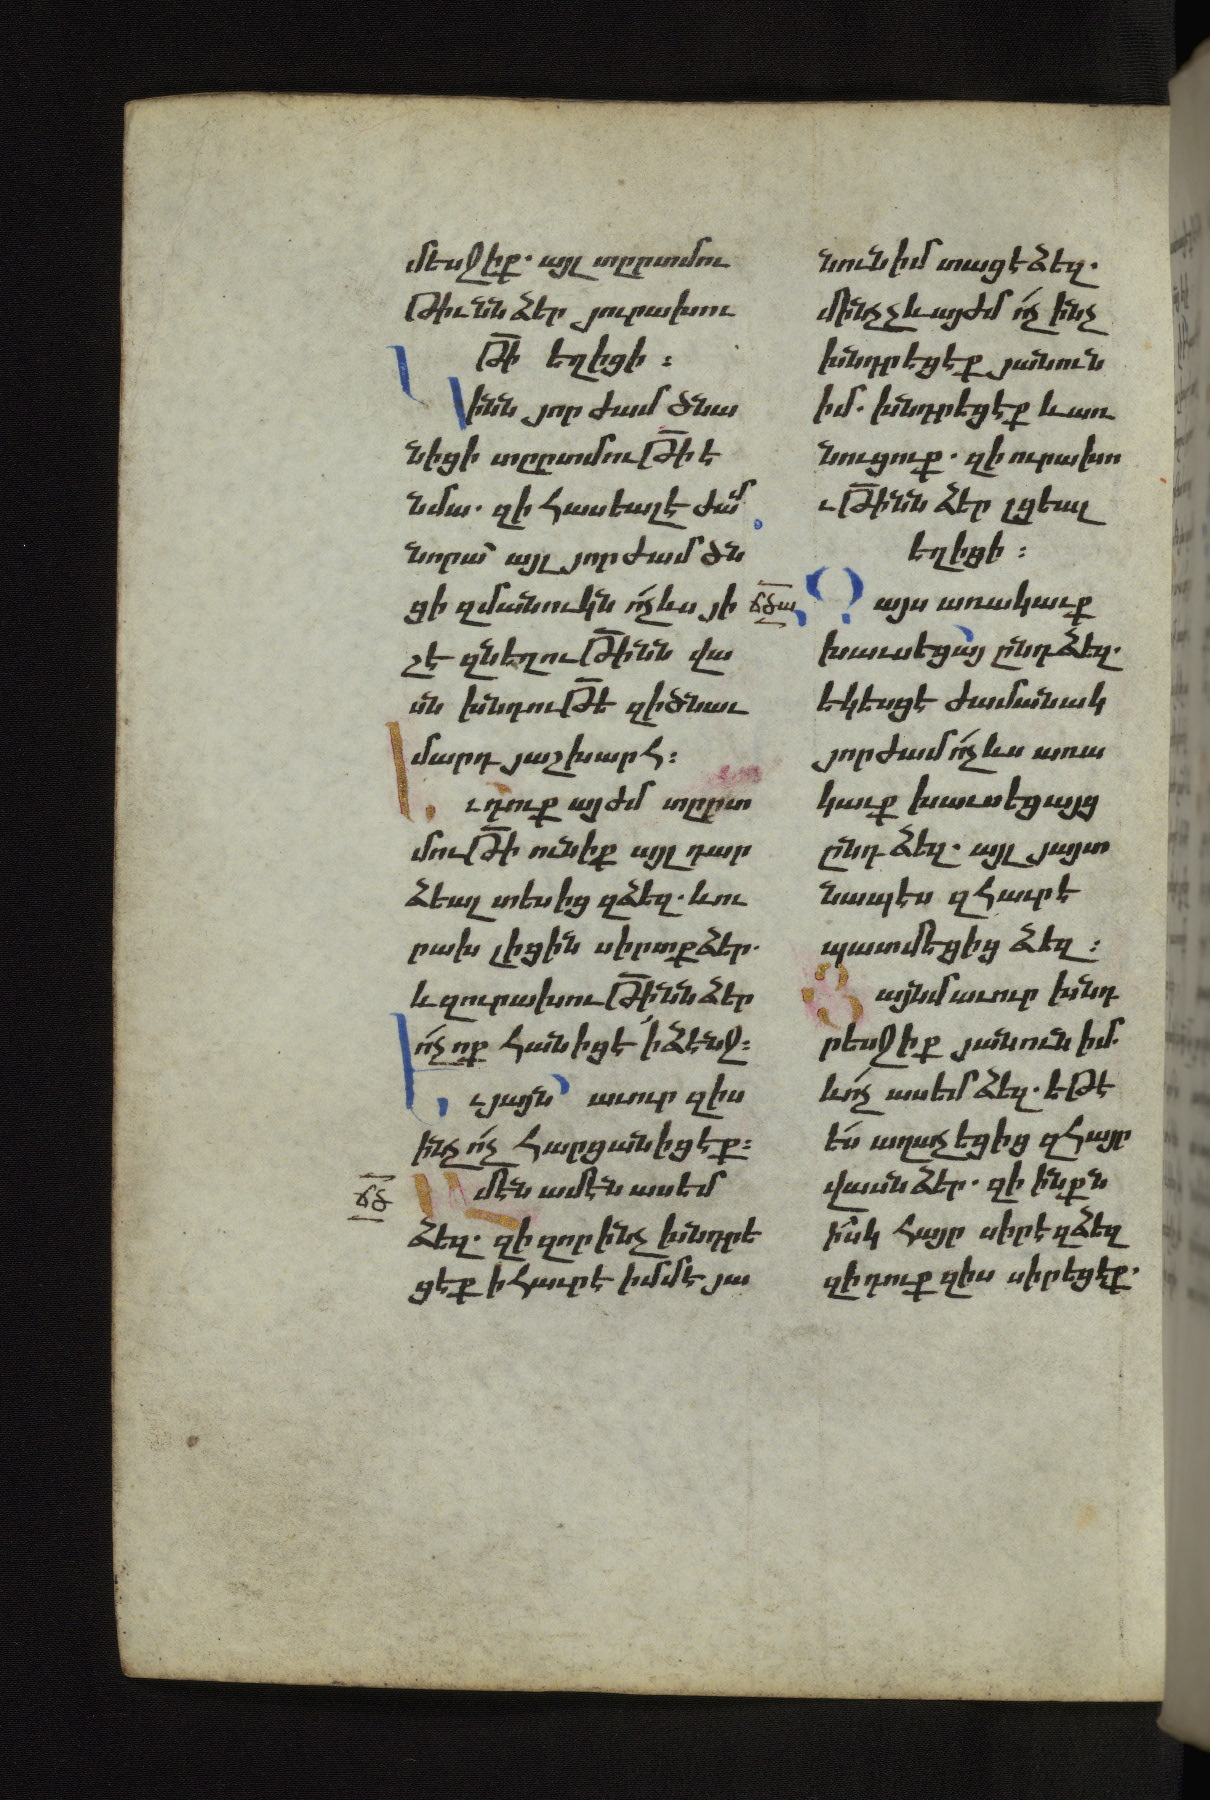 մեսջիք. այլ տըրտմու
թիւնն ձեր յուրախու
թի եղիցի :
Կինն յորժամ ծնա
նիցի տըրտմութի է
նմա. զի հասեալ է ժամ
նորա՝ այլ յորժամ ծն
ցի զմանուկն ոչ ևս յի
շէ զնեղութինն վա
սն խնդութե զի ծնաւ
մարդ յաշխարհ :
Եւ դուք այժմ տըրտ
մութի ունիք այլ դար
ձեալ տեսից զձեզ. և ու
րախ լիցին սիրտք ձեր.
և զուրախութինն ձեր
ոչ ոք հանիցէ ի ձէնջ :
Եւ յայնմ աւուր զիս
ինչ ոչ հարցանիցէք :
ՃԾ Ամէն ամէն ասեմ
ձեզ. զի զոր ինչ խնդրե
ցէք ի հաւրէ իմմէ յա
նուն իմ տացէ ձեզ.
մինչչև այժմ ոչ ինչ
խնդրեցէք յանուն
իմ. խնդրեցէք և առ
նուցուք. զի ուրախո
ւթինն ձեր լցեալ
եղիցի :
ՃԾԱ Զայս առակաւք
խաւսեցայ ընդ ձեզ.
եկեսցէ ժամանակ
յորժամ ոչ ևս առա
կաւք խաւսեցայց
ընդ ձեզ. այլ յայտ
նապէս զհաւրէ
պատմեցից ձեզ :
Յայնմ աւուր խնդ
րեսջիք յանուն իմ.
և ոչ ասեմ ձեզ. եթէ
ես աղաչեցից զհայր
վասն ձեր. զի ինքն
իսկ հայր սիրէ զձեզ
զի դուք զիս սիրեցէք.